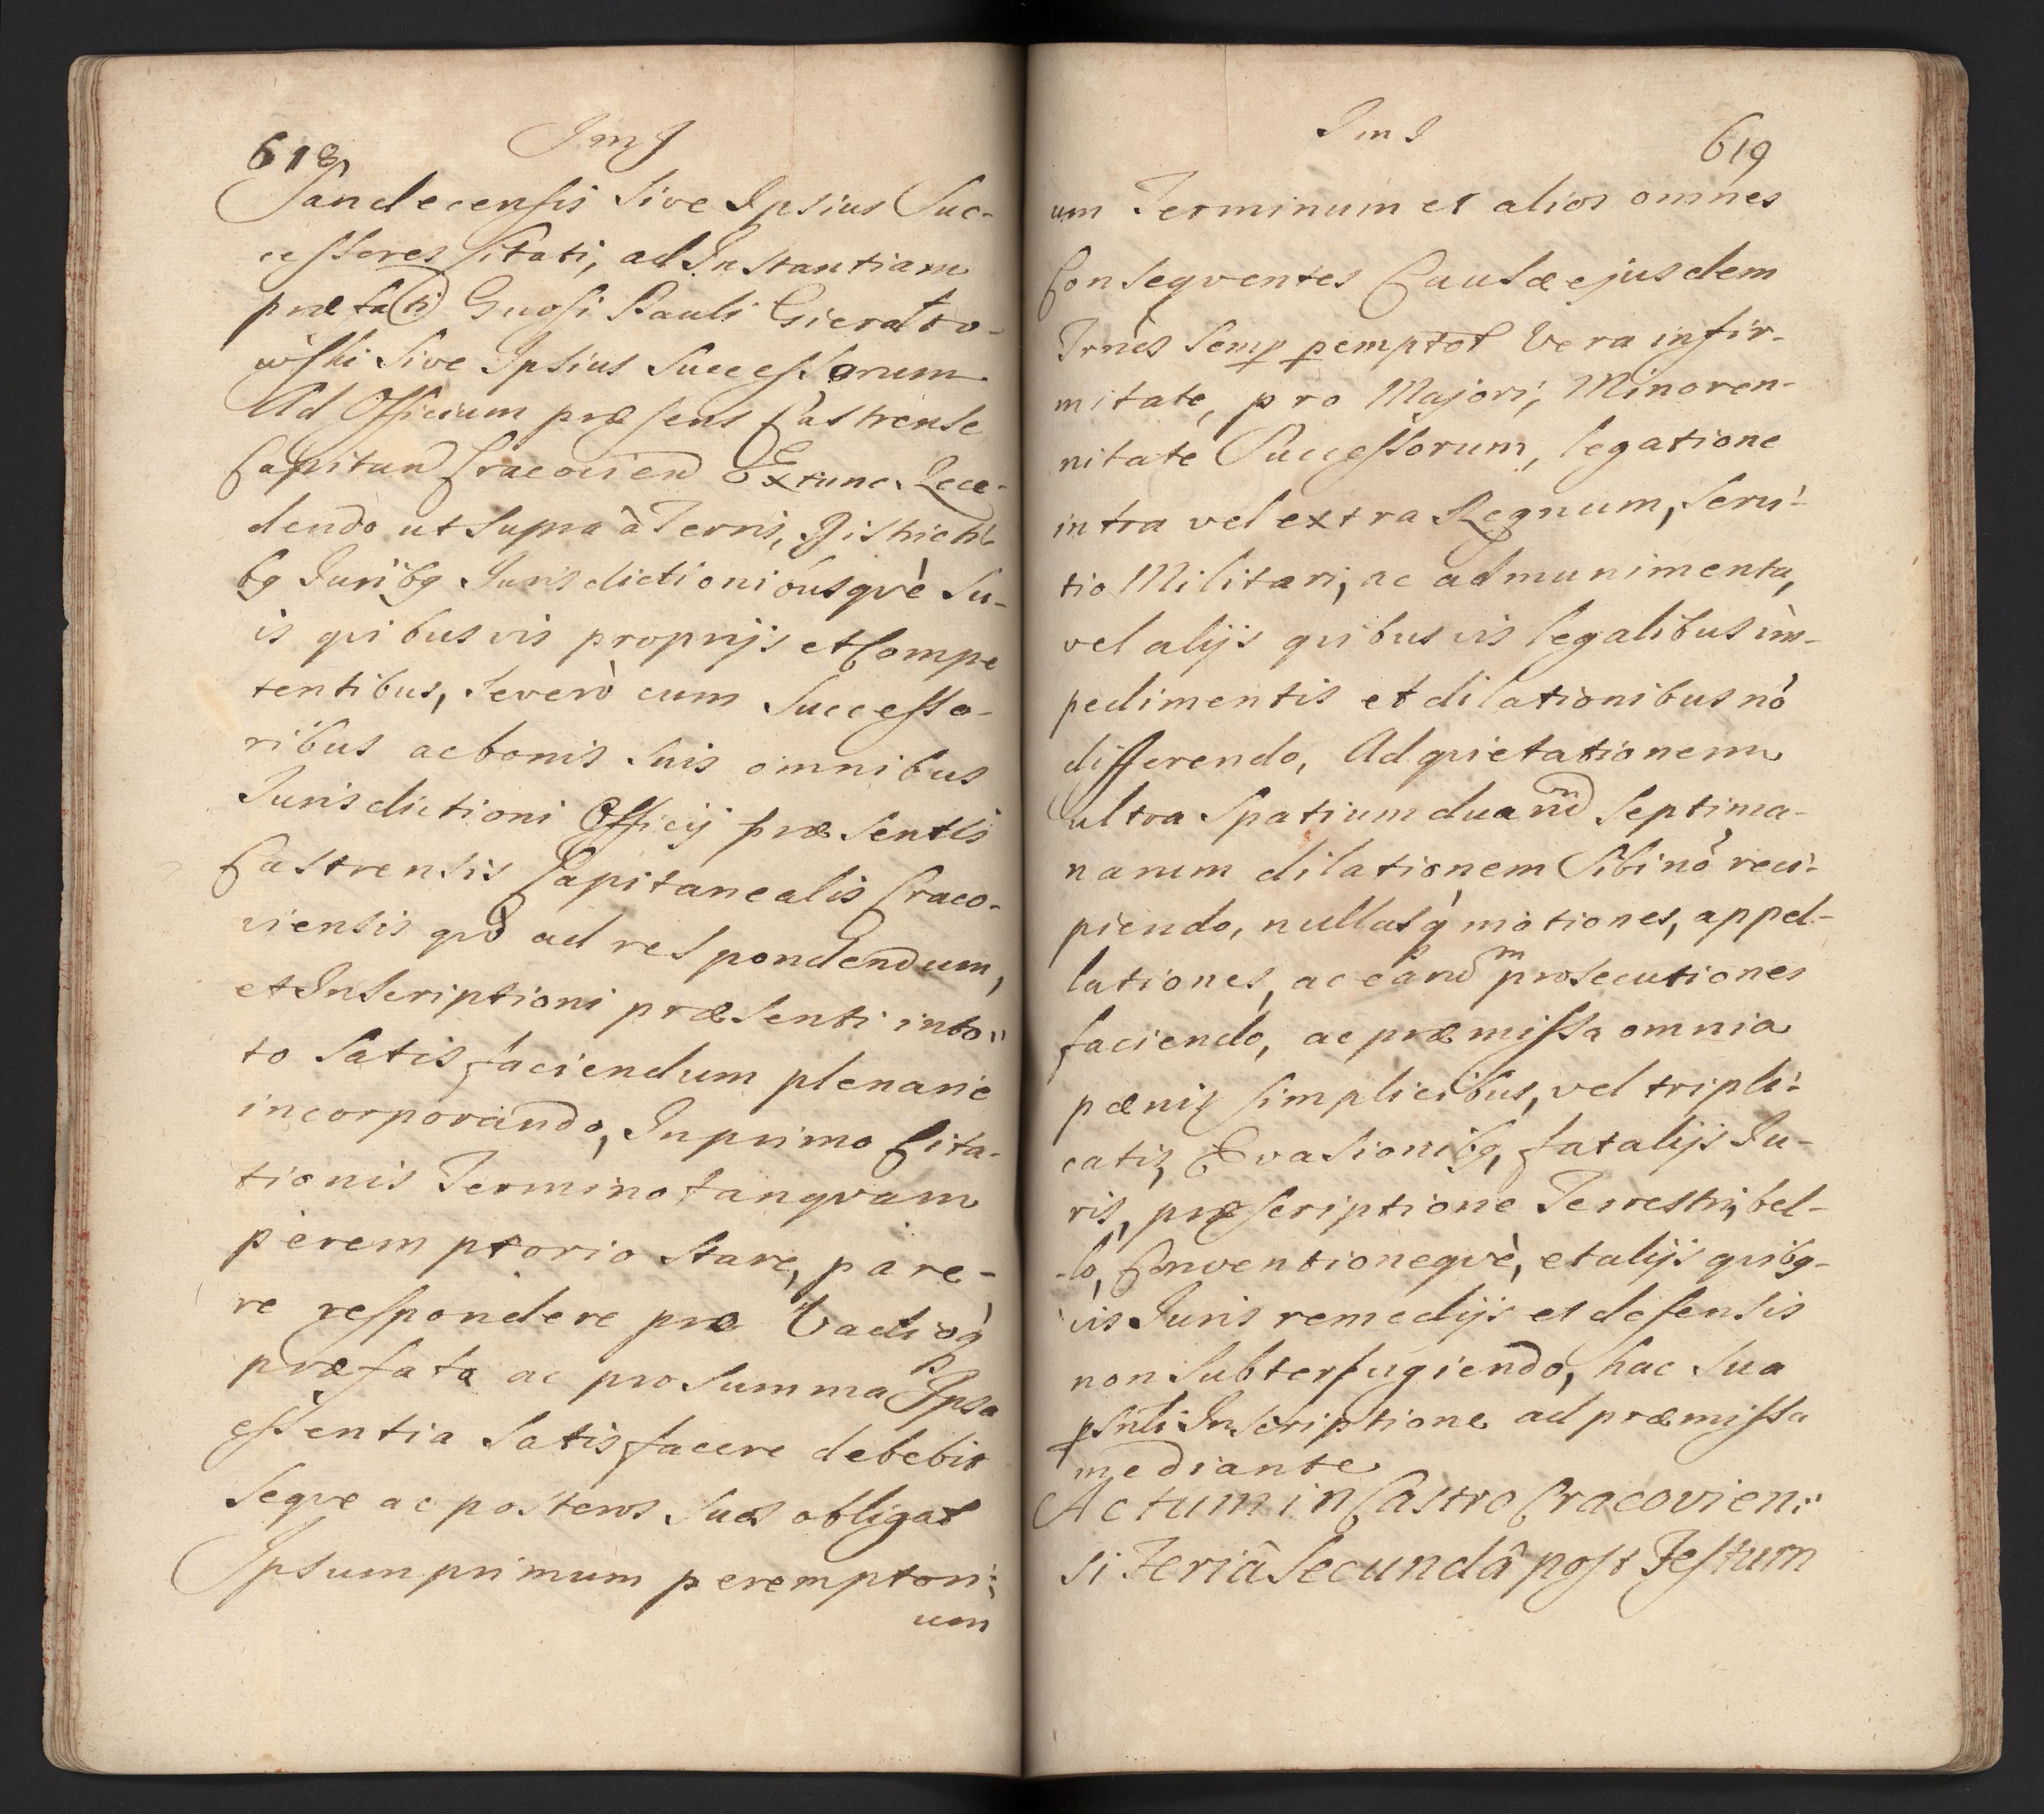 618
Im J
Sandecensis Sive Ipsius Suc-
cessores Citati, ad Instantiam
præfati Gnosi Pauli Gieralto-
wski Sive Ipsius Successorum
Ad Officium præsens Castrense
Capitan Cracovien Extunc Rece-
dendo ut Supra à Terris, Districti
bq Juribq Jurisdictionibusqvè Su-
is qvibusvis proprijs et Compe
tentibus, Severò cum Successo-
ribus ac bonis Suis omnibus
Jurisdictioni Officij præsentis
Castrensis Capitanealis Craco-
viensis qvò ad respondendum,
et Inscriptioni præsenti in to-
to Satisfaciendum plenariè
incorporando, In primo Cita-
tionis Termino tanqvam
peremptorio Stare, pare-
re respondere pro Vadioq̀
præfato ac pro Summa Ipsa
essentia Satisfacere debebit
Seqve ac posteros Suos obligat
Ipsum primum peremptori-
um
Im J
619
um Terminum et alios omnes
Conseqventes Causæ ejusdem
Trnos Semp pemptor Vera infir-
mitate, pro Majori, Minoren-
nitate Successorum, legatione
intra vel extra Regnum, Servi-
tio Militari, ac ad munimenta,
vel alijs qvibusvis legalibus im-
pedimentis et dilationibus nò
differendo, Ad qvietationem
ultra Spatium duarum Septima-
narum dilationem Sibi nò reci-
piendo, nullasq̀ motiones, appel-
lationes, ac earundm prosecutiones
faciendo, ac præmissa omnia
pænis simplicibus, vel tripli-
catis, Evasionibq, fatalijs Ju-
ris, præscriptione Terrestri, bel-
-lo, Conventioneqvè, et alijs qvibq-
vis Juris remedijs et defensis
non Subterfugiendo, hac Sua
pSnti Inscriptione ad præmissa
mediante
Actum in Castro Cracovien-
si Feriâ Secundâ post Festum